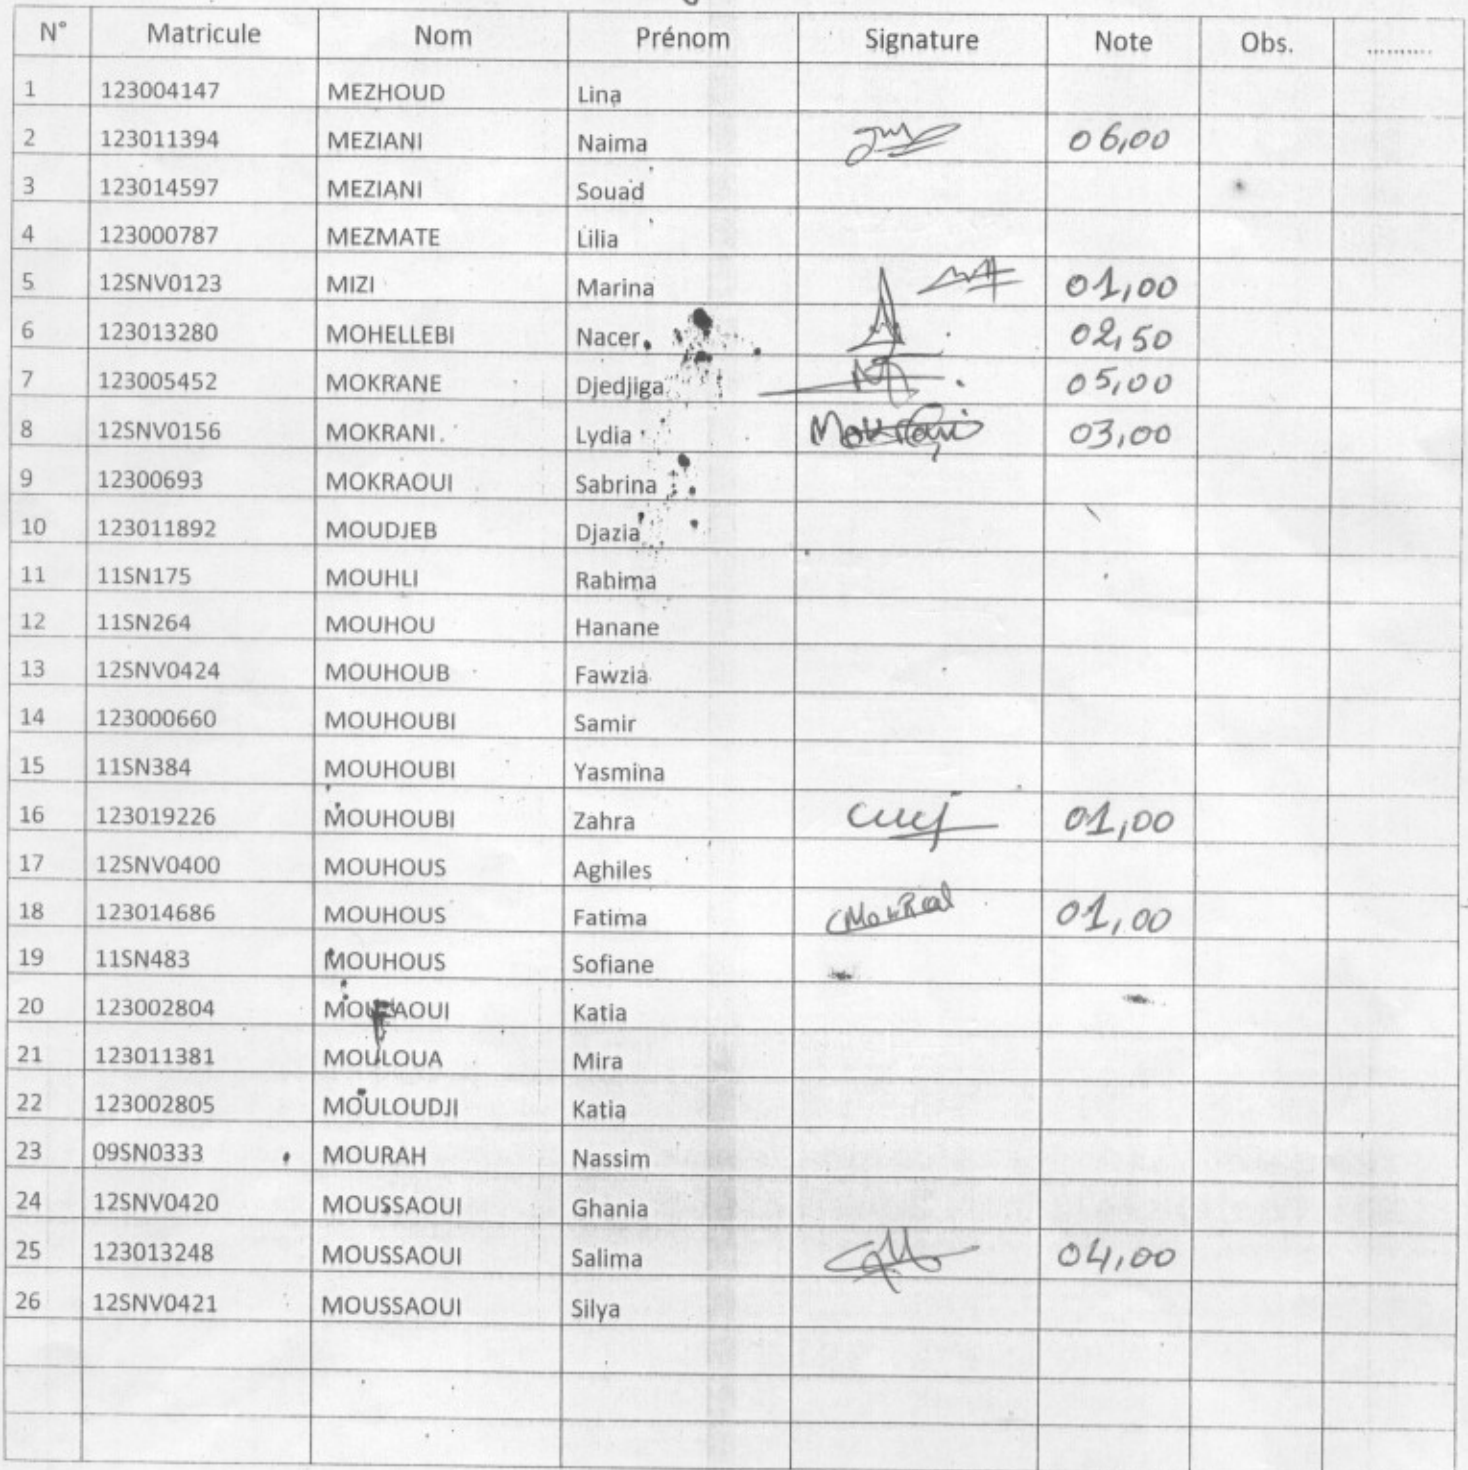 N° Matricule Nom Prénom Signature Note Obs. ...........
1 123004147 MEZHOUD Lina
2 123011394 MEZIANI Naima 06,00
3 123014597 MEZIANI Souad
4 123000787 MEZMATE Lilia
5 12SNV0123 MIZI Marina 01,00
6 123013280 MOHELLEBI Nacer 02,50
7 123005452 MOKRANE Djedjiga 05,00
8 12SNV0156 MOKRANI Lydia Mokrani 03,00
9 12300693 MOKRAOUI Sabrina
10 123011892 MOUDJEB Djazia
11 11SN175 MOUHLI Rahima
12 11SN264 MOUHOU Hanane
13 12SNV0424 MOUHOUB Fawzia
14 123000660 MOUHOUBI Samir
15 11SN384 MOUHOUBI Yasmina
16 123019226 MOUHOUBI Zahra 01,00
17 12SNV0400 MOUHOUS Aghiles
18 123014686 MOUHOUS Fatima 01,00
19 11SN483 MOUHOUS Sofiane
20 123002804 Katia
21 123011381 MOULOUA Mira
22 123002805 MOULOUDJI Katia
23 09SN0333 MOURAH Nassim
24 12SNV0420 MOUSSAOUI Ghania
25 123013248 MOUSSAOUI Salima 04,00
26 12SNV0421 MOUSSAOUI Silya